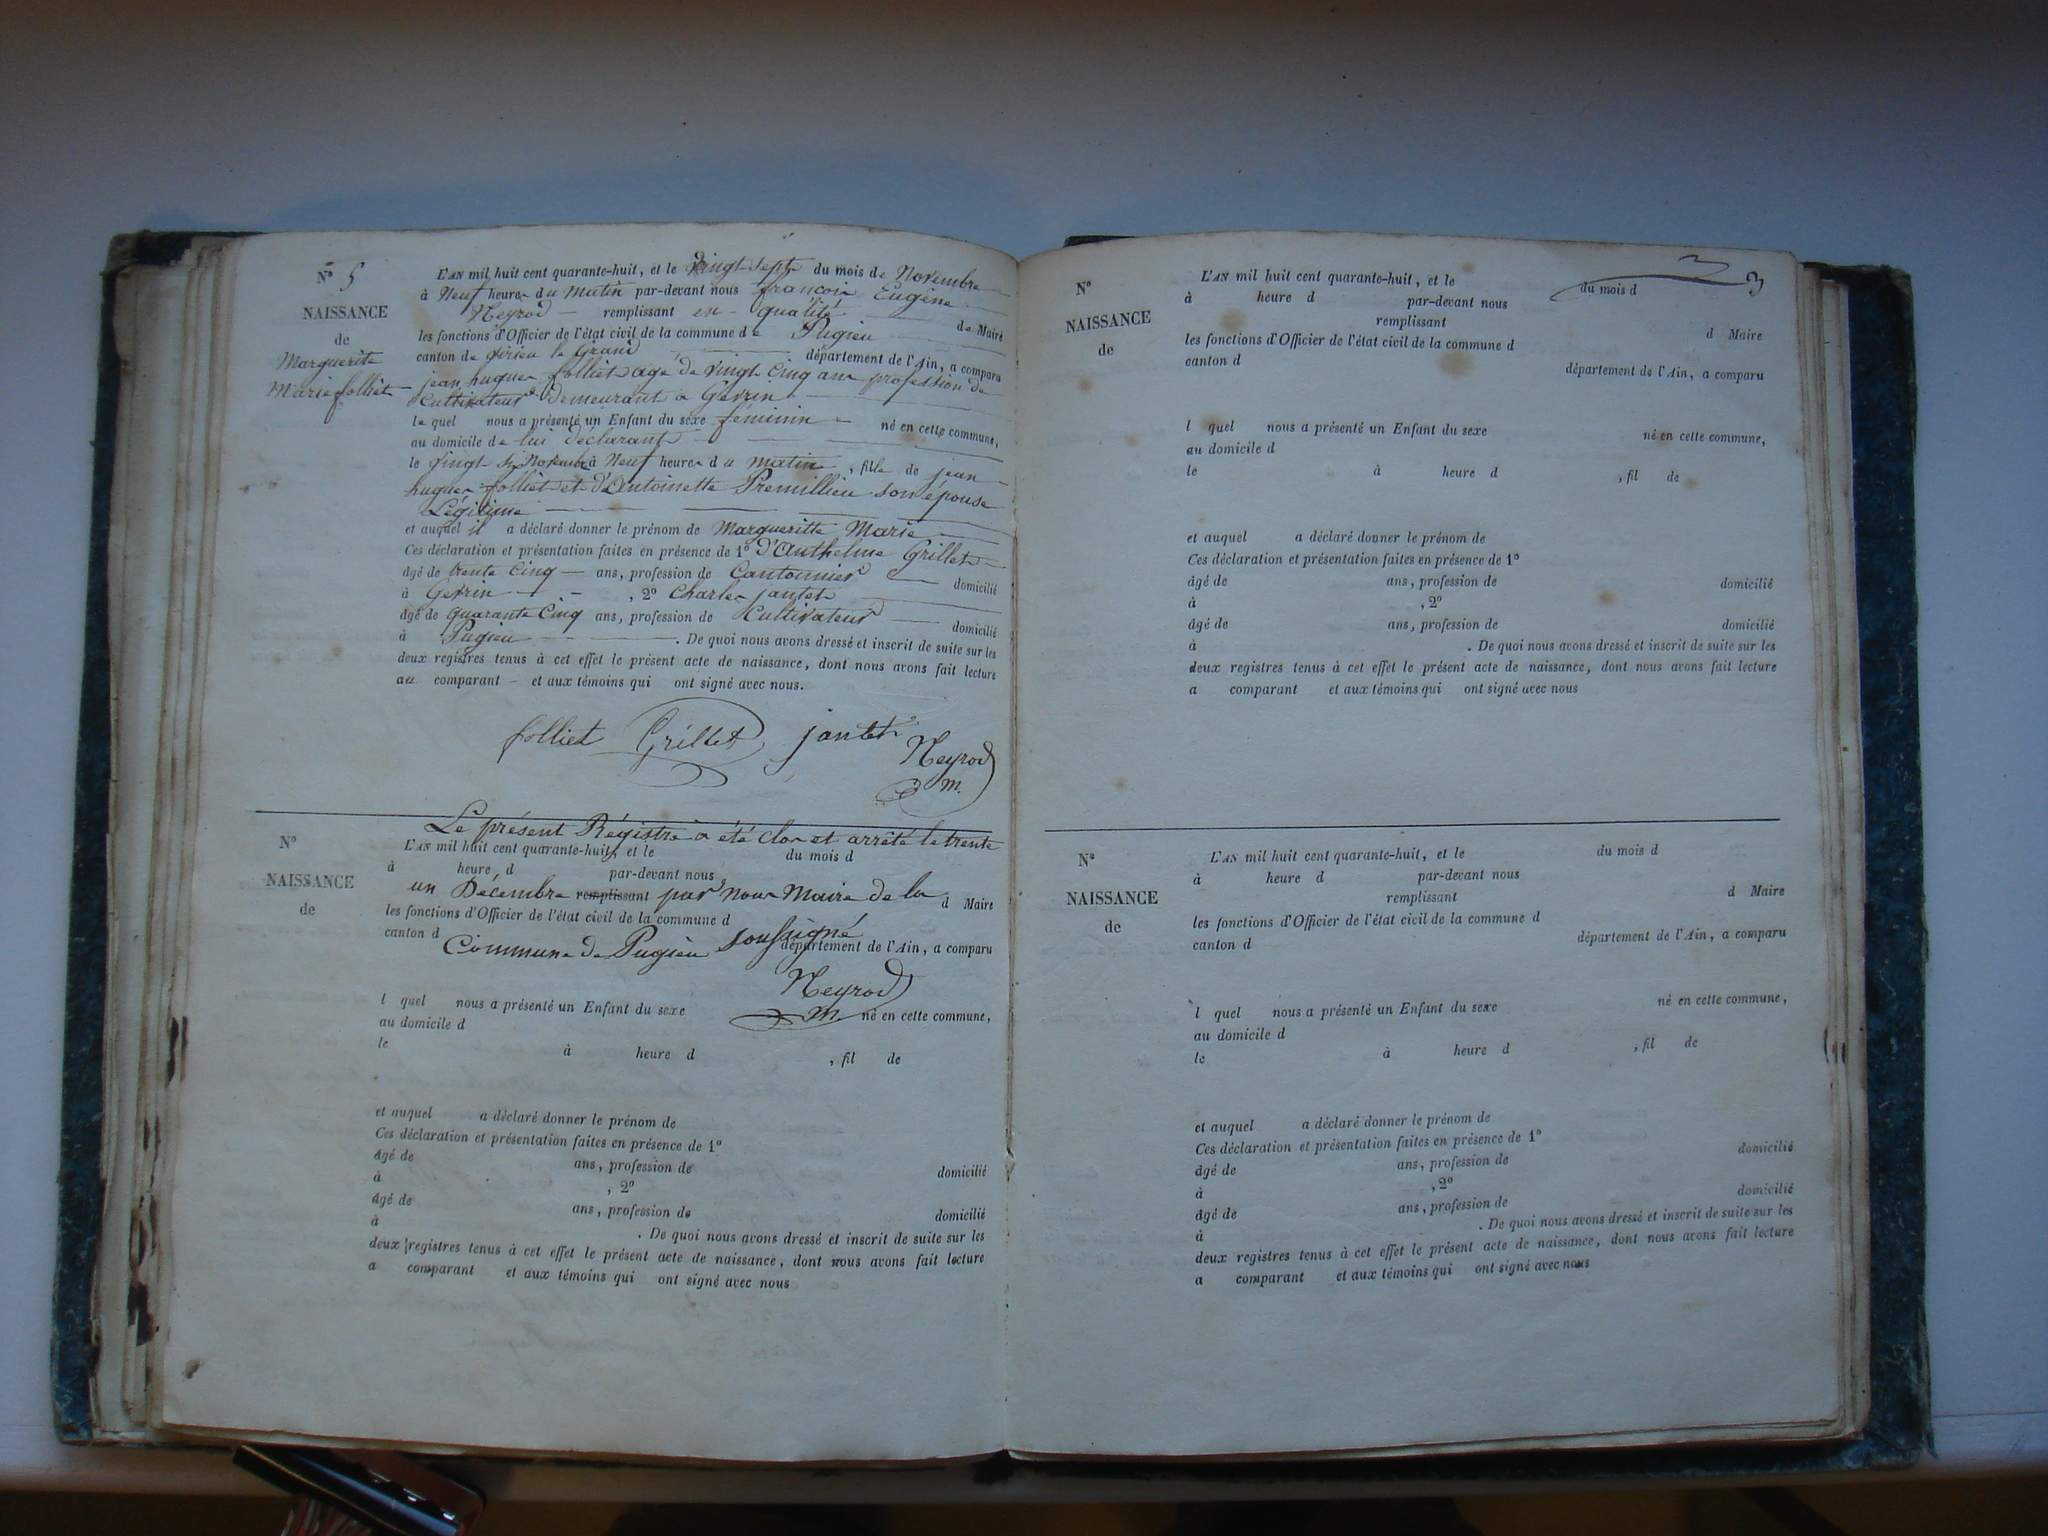 Nº 5
NAISSANCE
de
Marguerite
Marie folliet
L'AN mil huit cent quarante-huit, et le vingt Sept du mois de Novembre
à Neuf heures du Matin par-devant nous françois Eugène
Neyrod remplissant en qualité de Maire
les fonctions d'Officier de l'état civil de la commune de Pugieu
canton de Virieu le Grand département de l'Ain, a comparu
jean hugues folliet age de vingt Cinq ans profession de
Cultivateur demeurant a Gevrin
le quel nous a présenté un Enfant du sexe féminin né en cette commune,
au domicile de lui déclarant
le vingt Six Novembre à Neuf heures du matin, fille de jean
hugues folliet et d'Antoinette Premillieu son épouse
Légitime
et auquel il a déclaré donner le prénom de Margueritte Marie
Ces déclaration et présentation faites en présence de 1º D'Anthelme Grillet
âgé de trente Cinq ans, profession de Cantonnier domicilié
à Gevrin , 2º Charles jantet
âgé de quarante Cinq ans, profession de Cultivateur domicilié
à Pugieu . De quoi nous avons dressé et inscrit de suite sur les
deux registres tenus à cet effet le présent acte de naissance, dont nous avons fait lecture
au comparant et aux témoins qui ont signé avec nous.
folliet Grillet jantet Neyrod
m.
Le présent Régistre a été clos et arrêté le trente
Nº
NAISSANCE
de
L'AN mil huit cent quarante-huit, et le du mois d
à heure d par-devant nous
un Décembre remplissant par nous Maire de la d Maire
les fonctions d'Officier de l'état civil de la commune d
canton d département de l'Ain, a comparu
Commune de Pugieu soussigné
Neyrod
m.
l quel nous a présenté un Enfant du sexe né en cette commune,
au domicile d
le à heure d , fil de
et auquel a déclaré donner le prénom de
Ces déclaration et présentation faites en présence de 1º
âgé de ans, profession de domicilié
à , 2º
âgé de ans, profession de domicilié
à . De quoi nous avons dressé et inscrit de suite sur les
deux registres tenus à cet effet le présent acte de naissance, dont nous avons fait lecture
a comparant et aux témoins qui ont signé avec nous
3
Nº
NAISSANCE
de
L'AN mil huit cent quarante-huit, et le du mois d
à heure d par-devant nous
remplissant d Maire
les fonctions d'Officier de l'état civil de la commune d
canton d département de l'Ain, a comparu
l quel nous a présenté un Enfant du sexe né en cette commune,
au domicile d
le à heure d , fil de
et auquel a déclaré donner le prénom de
Ces déclaration et présentation faites en présence de 1º
âgé de ans, profession de domicilié
à , 2º
âgé de ans, profession de domicilié
à . De quoi nous avons dressé et inscrit de suite sur les
deux registres tenus à cet effet le présent acte de naissance, dont nous avons fait lecture
a comparant et aux témoins qui ont signé avec nous
Nº
NAISSANCE
de
L'AN mil huit cent quarante-huit, et le du mois d
à heure d par-devant nous
remplissant d Maire
les fonctions d'Officier de l'état civil de la commune d
canton d département de l'Ain, a comparu
l quel nous a présenté un Enfant du sexe né en cette commune,
au domicile d
le à heure d , fil de
et auquel a déclaré donner le prénom de
Ces déclaration et présentation faites en présence de 1º
âgé de ans, profession de domicilié
à , 2º
âgé de ans, profession de domicilié
à . De quoi nous avons dressé et inscrit de suite sur les
deux registres tenus à cet effet le présent acte de naissance, dont nous avons fait lecture
a comparant et aux témoins qui ont signé avec nous